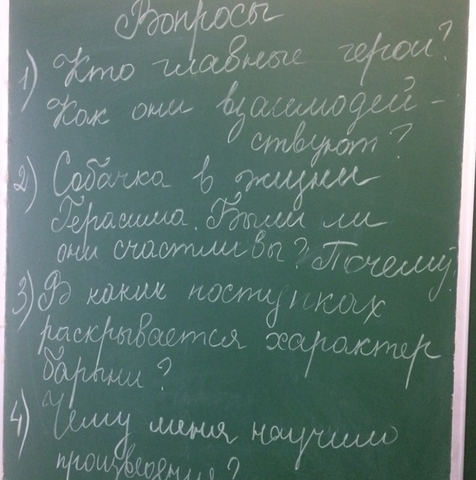 Вопросы
1) Кто главные герои?
Как они взаимодей-
ствуют?
2) Собачка в жизни
Герасима. Были ли
они счастливы? Почему?
3) В каких поступках
раскрывается характер
барыни?
4) Чему меня научило
произведение?